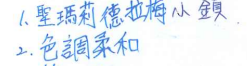 1. 聖瑪莉德拉梅小鎮.
2. 色調柔和